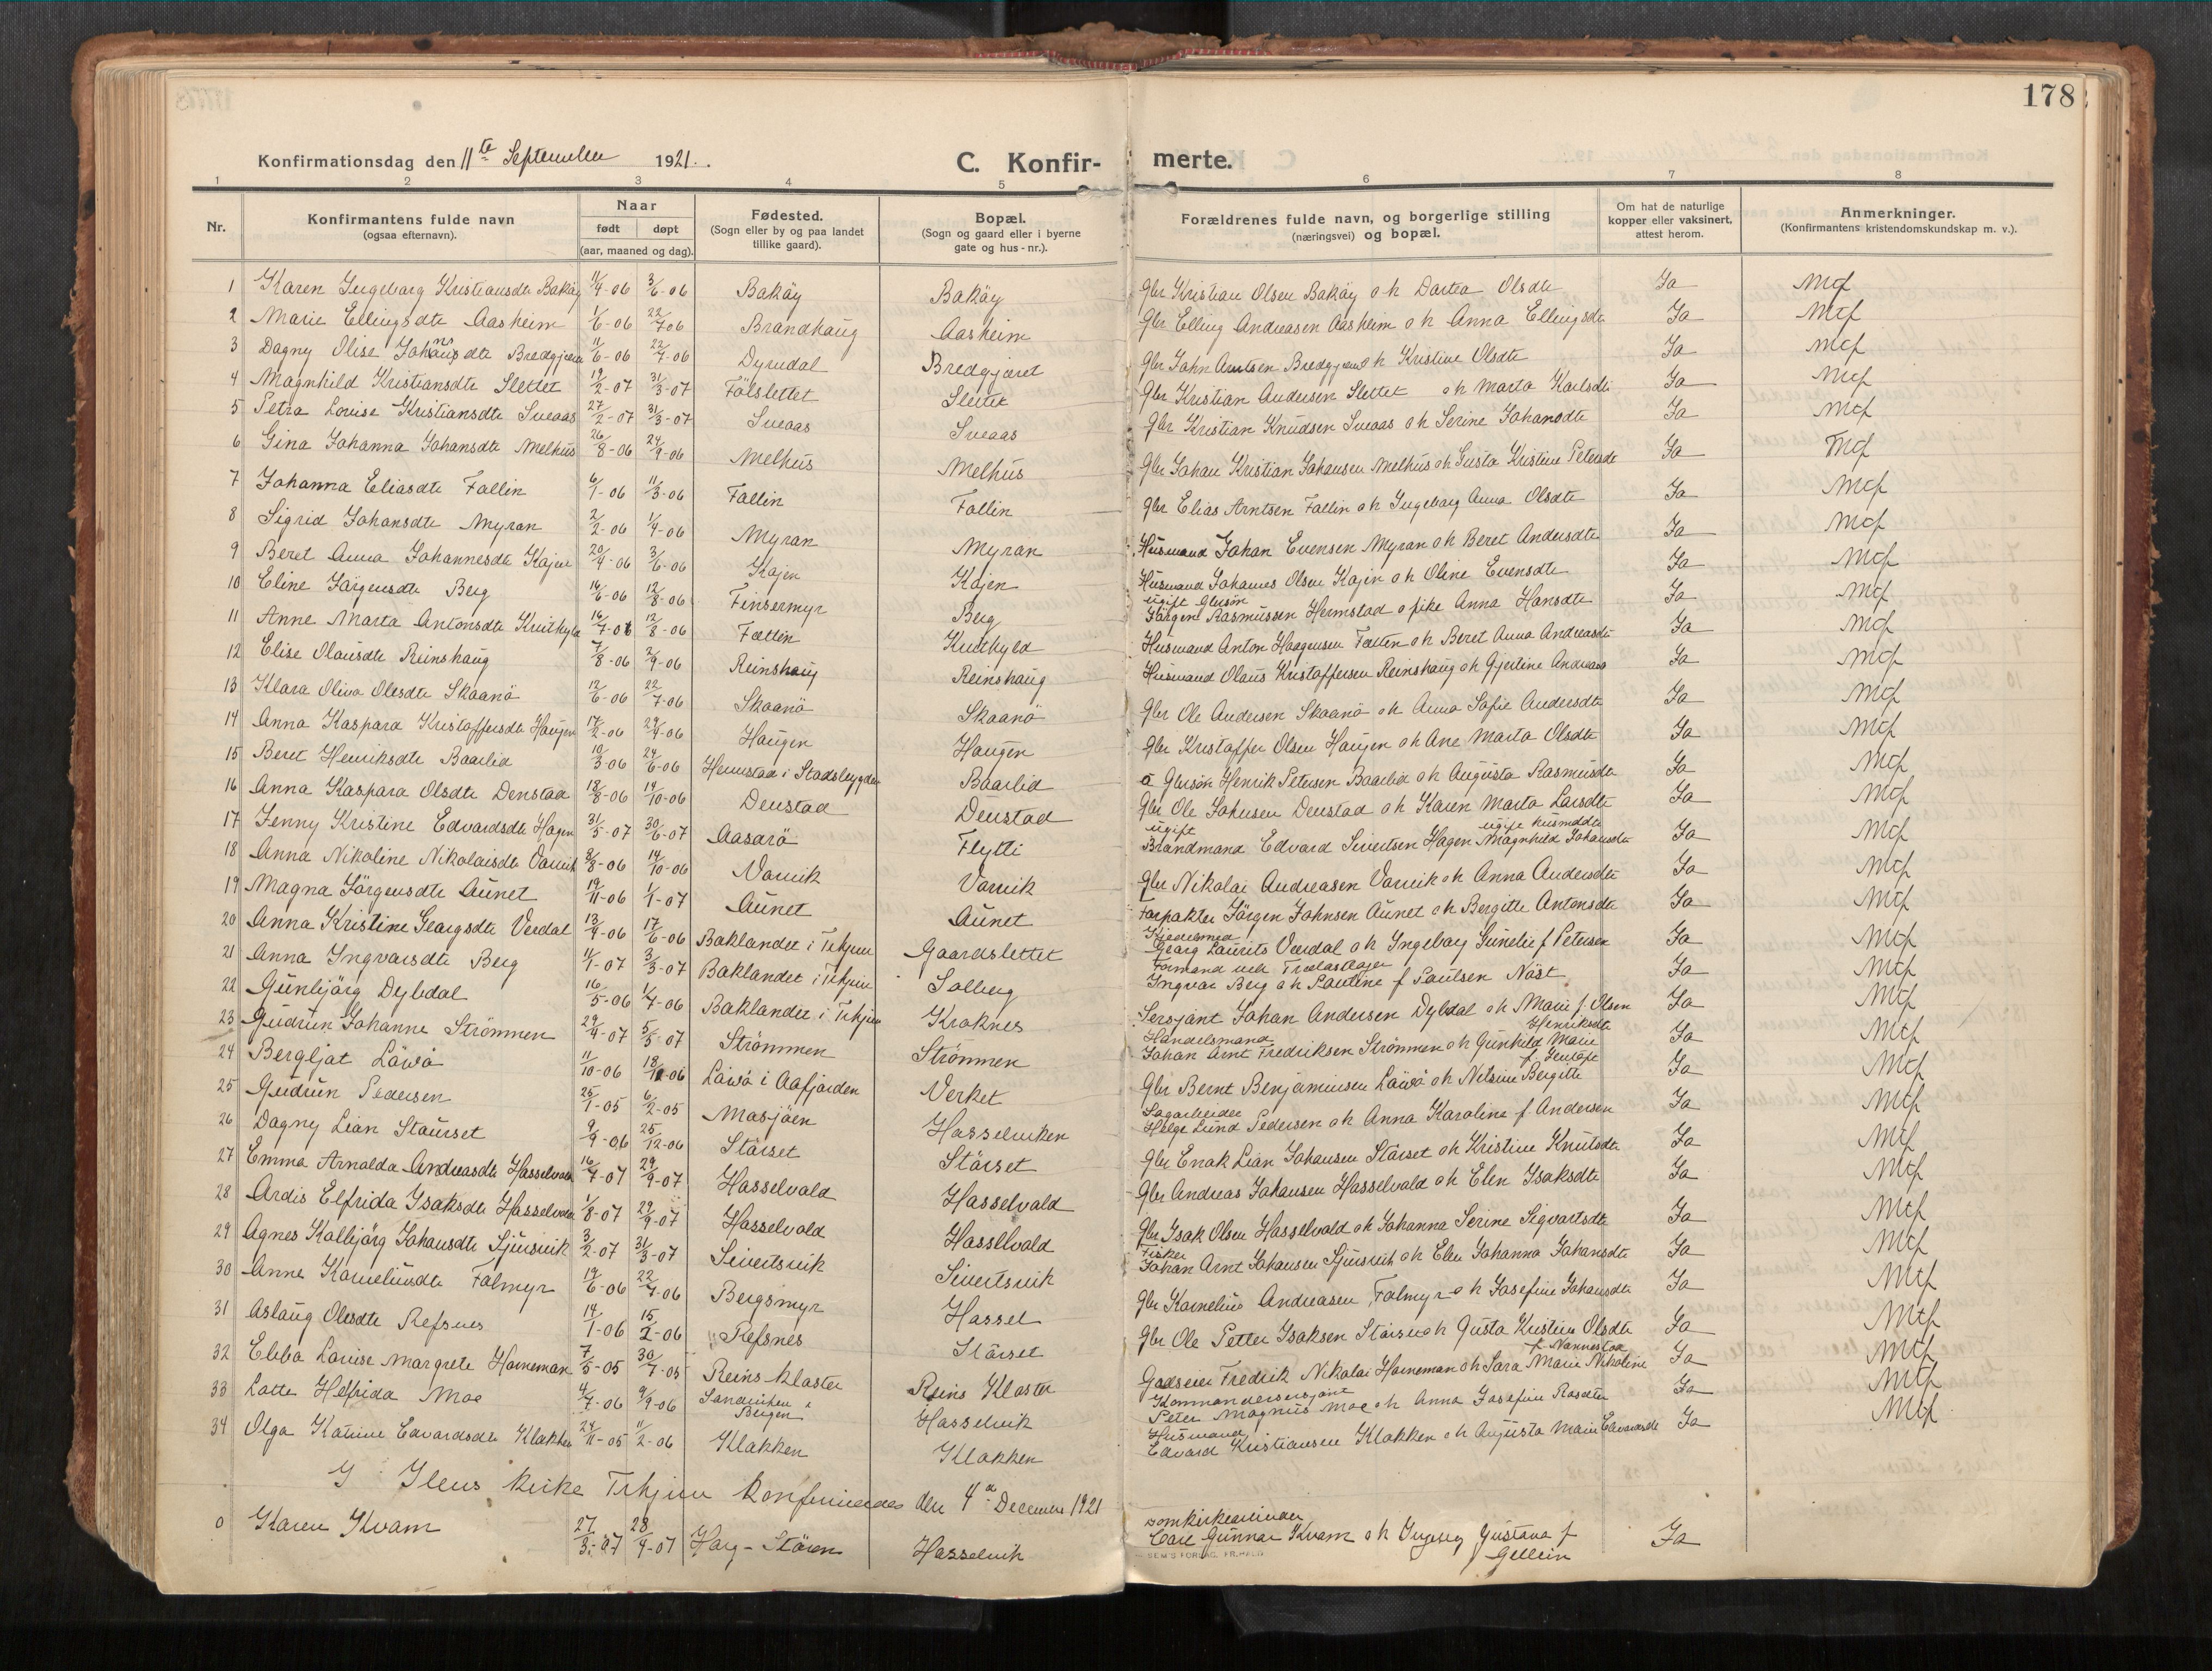 178
Konfirmationsdag den 11te September 1921.
C. Konfir- merte.
1 2 3 4 5 6 7 8
Nr.
Konfirmantens fulde navn
(ogsaa efternavn).
Naar
født døpt
(aar, maaned og dag).
Fødested.
(Sogn eller by og paa landet
tillike gaard).
Bopæl.
(Sogn og gaard eller i byerne
gate og hus-nr.).
Forældrenes fulde navn, og borgerlige stilling
(næringsvei) og bopæl.
Om hat de naturlige
kopper eller vaksinert,
attest herom.
Anmerkninger.
(Konfirmantens kristendomskundskap m. v.).
1 Karen Ingeborg Kristiansdtr Bakøy 11/4-06 3/6-06 Bakøy Bakøy Gbr Kristian Olsen Bakøy o h Dortea Olsdtr Ja Mcf
2 Marie Ellingsdtr Aasheim 1/6-06 22/7 06 Brandhaug Aasheim Gbr Elling Andreasen Aasheim o h Anna Ellingsdtr Ja Mcf
3 Dagny Olise Johansdtr Bredgjæret 11/6-06 22/7-06 Dyrndal Bredgjæret Gbr John Arntsen Bredgjæret o h Kristine Olsdtr Ja Mcf
4 Magnhild Kristiansdtr Slettet 19/2-07 31/3-07 Fölslettet Slettet Gbr Kristian Andersen Slettet o h Marta Karlsdtr Ja Mcf
5 Petra Louise Kristiansdtr Sveaas 27/2-07 31/3-07 Sveaas Sveaas Gbr Kristian Knudsen Sveaas o h Serine Johansdtr Ja Mcf
6 Gina Johanna Johansdtr Melhus 26/8-06 24/9-06 Melhus Melhus Gbr Johan Kristian Johansen Melhus o h Gusta Kristine Petersdtr Ja Mcf
7 Johanna Eliasdtr Follin 6/1-06 11/3-06 Follin Follin Gbr Elias Arntsen Follin o h Ingeborg Anna Olsdtr Ja Mcf
8 Sigrid Johansdtr Myran 2/2-06 1/4-06 Myran Myran Husmand Johan Evensen Myran o h Beret Andersdtr Ja Mcf
9 Beret Anna Johannesdtr Kojen 20/4-06 3/6-06 Kojen Kojen Husmand Johannes Olsen Kojen o h Oline Evensdtr Ja Mcf
10 Eline Jörgensdtr Berg 16/6-06 12/8-06 Finsermyr Berg ugift Gbrsøn
Jörgen Rasmussen Hermstad o pike Anna Hansdtr Ja Mcf
11 Anne Marta Antonsdtr 16/7-06 12/8-06 Fætten Husmand Anton Haagensen Fætten o h Beret Anna Andreasdtr Ja Mcf
12 Elise Olausdtr Reinshaug 7/8-06 2/9-06 Reinshaug Reinshaug Husmand Olaus Kristoffersen Reinshaug o h Gjertine Ja Mcf
13 Klara Oliva Olesdtr Skaanö 12/6-06 22/7-06 Skaanö Skaanö Gbr Ole Andersen Skaanö o h Anna Sofie Andersdtr Ja Mcf
14 Anna Kaspara Kristoffersdtr Haugen 17/2-06 29/4-06 Haugen Haugen Gbr Kristoffer Olsen Haugen o h Ane Marta Olsdtr Ja Mcf
15 Beret Henriksdtr Baarlid 10/3-06 24/6-06 Hermstad i Stadsbygden Baarlid Gbrsøn Henrik Petersen Baarlid o h Augusta Rasmusdtr Ja Mcf
16 Anna Kaspara Olsdtr Denstad 18/8-06 14/10-06 Denstad Denstad Gbr Ole Johnsen Denstad o h Karen Marta Larsdtr Ja Mcf
17 Jenny Kristine Edvardsdtr Hagen 31/5-07 30/6-07 Aasarö Flytti ugift ugift husmdtr
Brandmand Edvard Sivertsen Hagen Magnhild Johansdtr Ja Mcf
18 Anna Nikoline Nikolaisdtr Varvik 2/8-06 14/10-06 Varvik Varvik Gbr Nikolai Andreasen Varvik o h Anna Andersdtr Ja Mcf
19 Magna Jörgensdtr Aunet 19/11-06 1/1-07 Aunet Aunet Forpakter Jörgen Johnsen Aunet o h Bergitte Antonsdtr Ja Mcf
20 Anna Kristine Georgsdtr Verdal 13/4-06 17/6-06 Baklandet i Trhjem Gaardslettet Kjedelsmed
Georg Laurits Verdal o h Ingeborg Gunelie f Petersen Ja Mcf
21 Anna Ingvarsdtr Berg 11/1-07 3/3-07 Baklandet i Trhjem Solberg Formand ved Trælastlager
Ingvar Berg o h Pauline f Paulsen Nöst Ja Mcf
22 Gunbjörg Dybdal 16/5-06 1/7-06 Baklandet i Trhjem Kroknes Sersjant Johan Andersen Dybdal o h Marie f. Olsen Ja Mcf
23 Gudrun Johanne Strömmen 29/4-07 5/5-07 Strömmen Strömmen Handelsmand Henriksdtr
Johan Arnt Fredriksen Strömmen o h Gunhild Marie Ja Mtf
24 Bergljot Läwö 11/10-06 18/10-06 Läwö i Aafjorden Verket Gbr Bernt Benjaminsen Läwö o h Nelsine Bergitte Ja Mcf
25 Gudrun Pedersen 25/1-05 6/2-05 Mosjöen Hasselviken Sagarbeider
Helge Lund Pedersen o h Anna Karoline f. Andersen Ja Mtf
26 Dagny Lian Staurset 9/9-06 25/12-06 Stärset Stärset Gbr Enok Lian Johansen Stärset o h Kristine Knutsdtr Ja Mtf
27 Emma Arnolda Andreasdtr Hasselvold 16/7-07 29/9-07 Hasselvold Hasselvold Gbr Andreas Johansen Hasselvold o h Elen Isaksdtr Ja Mtf
28 Ardis Elfrida Isaksdtr Hasselvold 1/8-07 29/9-07 Hasselvold Hasselvold Gbr Isak Olsen Hasselvold o h Johanna Serine Sigvartsdtr Ja Mcf
29 Agnes Kolbjörg Johansdtr Sjursvik 3/2-07 31/3-07 Sivertsvik Sivertsvik Fisker
Johan Arnt Johansen Sjursvik o h Elen Johanna Johansdtr Ja Mtf
30 Anne Korneliusdtr Folmyr 19/6-06 22/7-06 Bergsmyr Hassel Gbr Kornelius Andreasen Folmyr o h Josefine Johansdtr Ja Mtf
31 Aslaug Olesdtr Refsnes 14/1-06 15/2-06 Refsnes Stärset Gbr Ole Petter Isaksen Stärset o h Gusta Kristine Olsdtr Ja Mtf
32 Ebba Louise Margrete Horneman 7/5-05 30/7-05 Reins kloster Reins Kloster f. Nannestad
Godseier Fredrik Nikolai Horneman o h Sara Marie Nikoline Ja Mtf
33 Lotte Helfrida Moe 4/7-06 9/9-06 Sandviken i
Bergen Hasselvik Kommandersersjant
Peter Magnus Moe o h Anna Josefine Ja Mtf
34 Olga Katrine Edvardsdtr Klakken 24/11-05 11/2-06 Klakken Klakken Husmand
Edvard Kristiansen Klakken o h Augusta Marie Edvardsdtr Ja Mtf
I Ilens kirke Trhjem konfirmeredes den 4de December 1921
0 Karen Kvam 27/3-07 28/4-07 Horg-Stören Hasselvik Domkirkearbeider
Carl Gunnar Kvam o h Ingeborg Gustava f
Gellein Ja
SEM'S FORLAG, FR.HALD